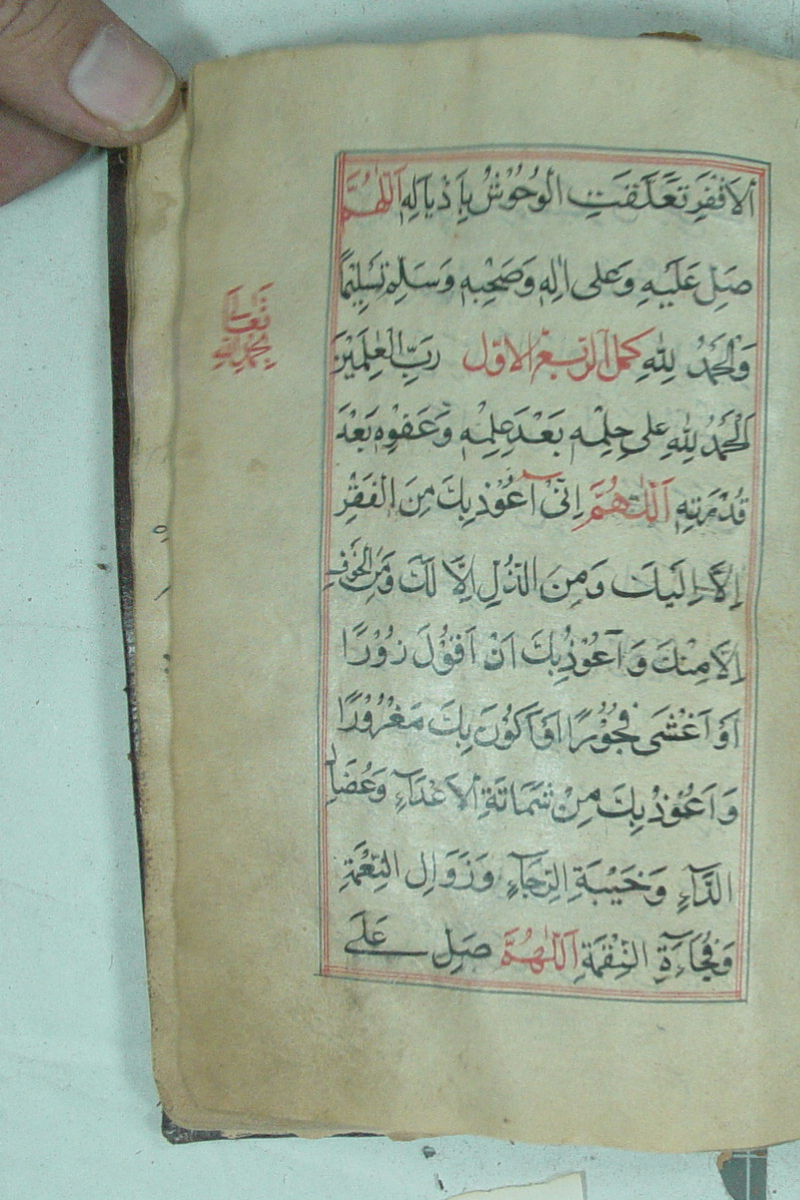 اَلاَقْفَرِ تَعَلَّقَتِ الْوُحُوْشُ بِاَذْيَالِهِ اَللّٰهُمَّ
صَلِّ عَلَيْهِ وَعَلى اٰلِهٖ وَصَحْبِهٖ وَسَلِّمْ تَسْلِيْمًا
وَالْحَمْدُ لِلّٰهِ كمل الربع الاول رَبِّ الْعٰلَمِيْنَ
اَلْحَمْدُ لِلّٰهِ عَلى حِلْمِهٖ بَعْدَ عِلْمِهٖ وَعَفْوِهٖ بَعْدَ
قُدْرَتِهٖ اَللّٰهُمَّ اِنِّىْ اَعُوْذُ بِكَ مِنَ الْفَقْرِ
اِلاَّ اِلَيْكَ وَمِنَ الذُّلِّ اِلاَّ لَكَ وَمِنَ الْخَوْفِ
اِلاَّ مِنْكَ وَاَعُوْذُ بِكَ اَنْ اَقُوْلَ زُوْرًا
اَوْ اَغْشَى فُجُوْرًا اَوْ اَكُوْنَ بِكَ مَغْرُوْرًا
وَاَعُوْذُ بِكَ مِنْ شَمَاتَةِ الاَعْدَآءِ وَعُضَالِ
الدَّآءِ وَخَيْبَةِ الرَّجَآءِ وَزَوَالِ النِّعْمَةِ
وَفُجَآءَةِ النِّقْمَةِ اَللّٰهُمَّ صَلِّ عَلَى
تَعَالَى
بحمد الله